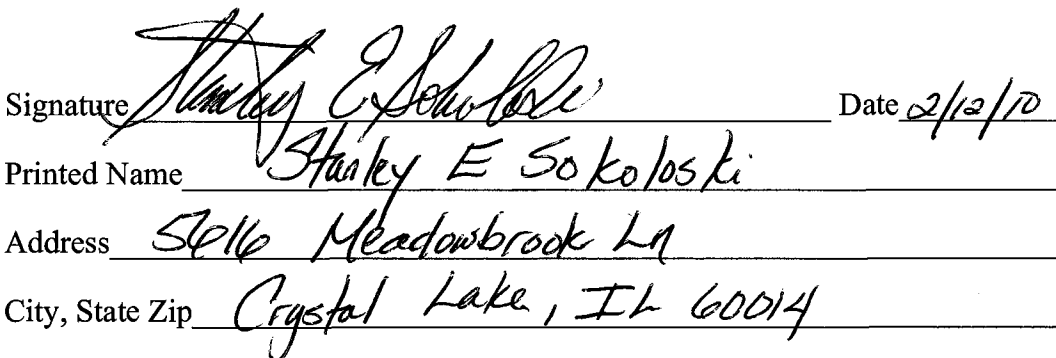 Signature Stanley E Sokoloski Date 2/12/10
Printed Name Stanley E Sokoloski
Address 5616 Meadowbrook Ln
City, State Zip Crystal Lake, IL 60014